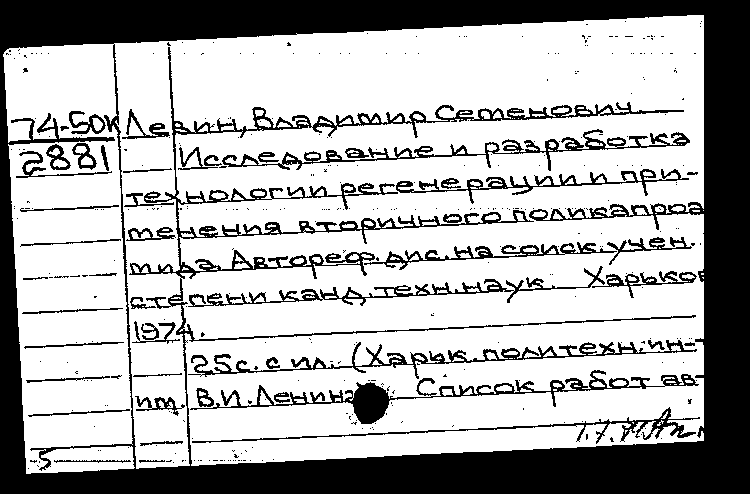 74-50К Левин, Владимир Семенович
2881 Исследование и разработка
технологии регенерации и при-
менения вторичного поликапроа
мида. Автореф. дис. на соиск. учен.
степени канд. техн. наук. Харьков
1974.
25с. с ил. (Харьк. политехн. ин-т
им. В.И. Ленина Список работ ав-
5